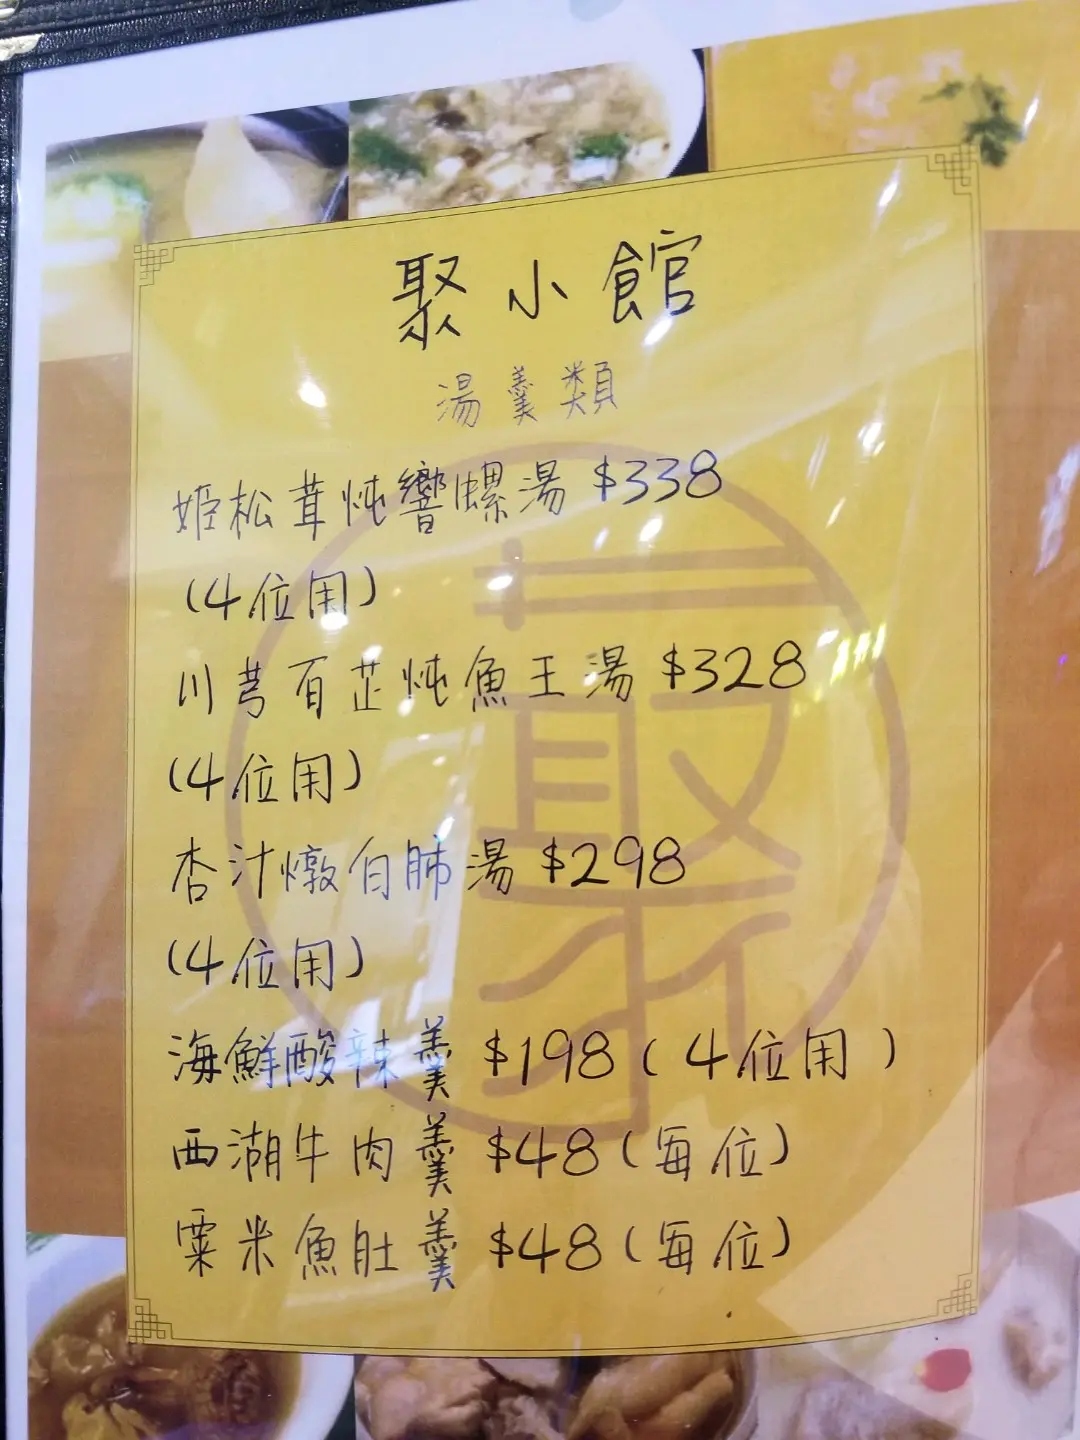 聚小館
湯羹類
姬松茸炖響螺湯 $338
(4位用)
川芎百芷炖魚王湯 $328
(4位用)
杏汁燉白肺湯 $298
(4位用)
海鮮酸辣羹 $198(4位用)
西湖牛肉羹 $48(每位)
粟米魚肚羹 $48(每位)
聚